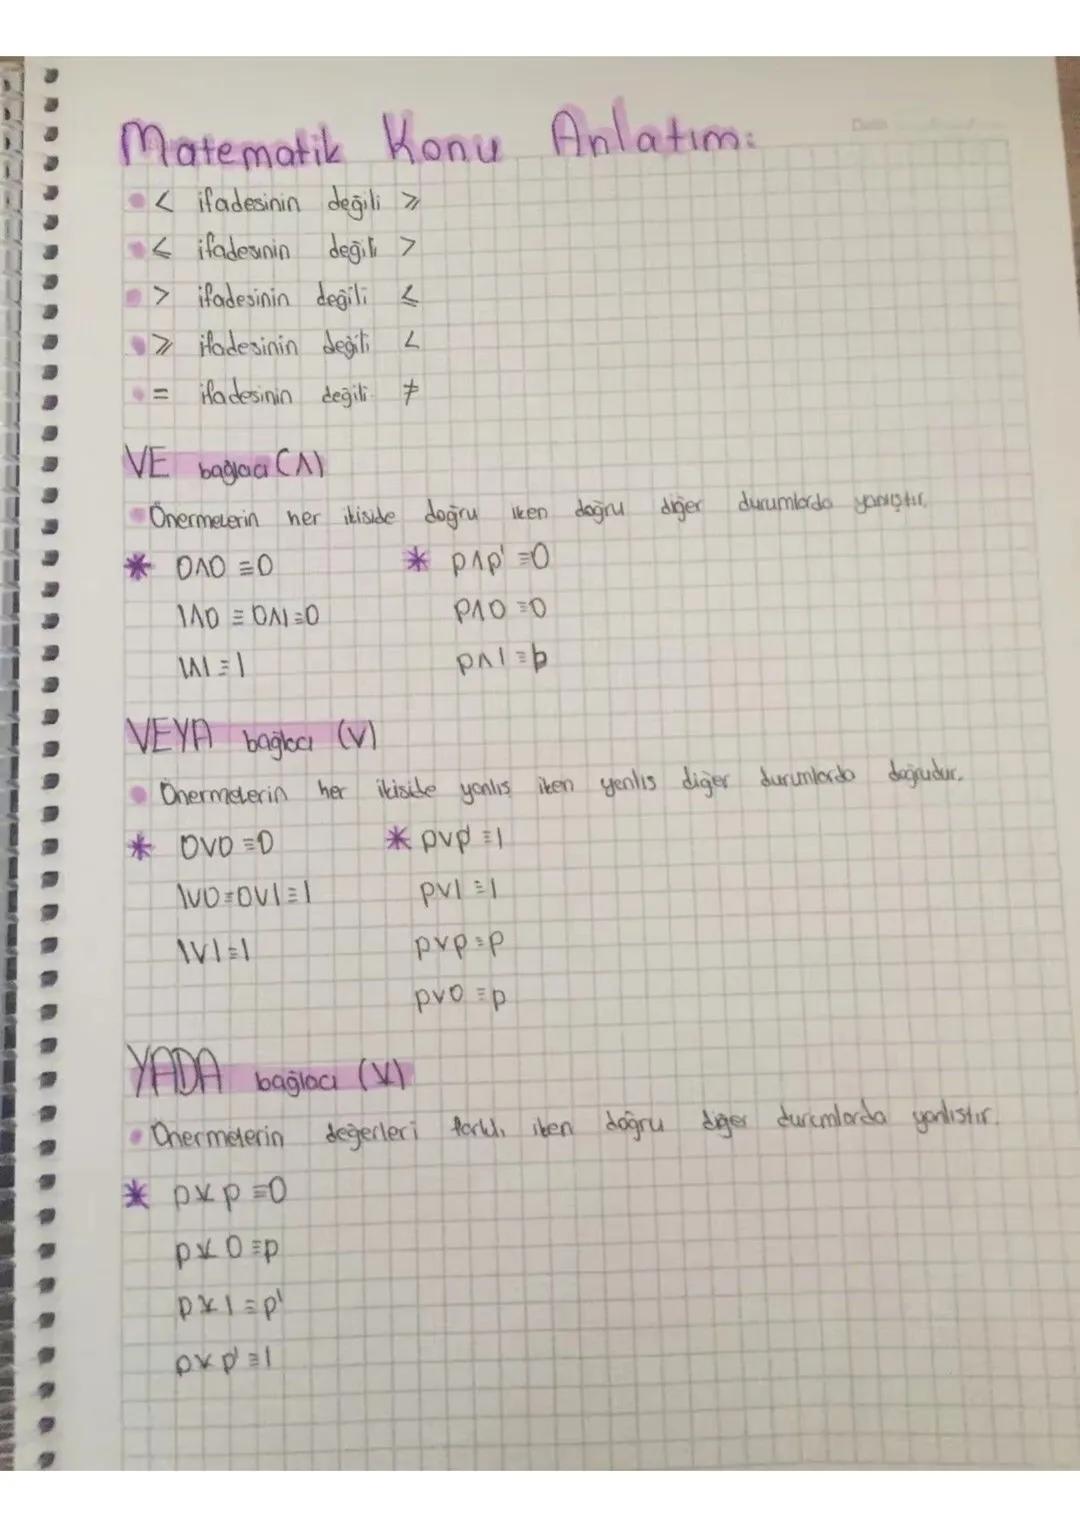 Matematik Konu Anlatım:
< ifadesinin değili ⩾
⩽ ifadesinin değili >
> ifadesinin değili ⩽
⩾ ifadesinin değili <
= ifadesinin değili ≠
VE bağlacı (∧)
Önermelerin her ikiside doğru iken doğru diğer durumlarda yanlıştır.
* 0∧0 ≡ 0 * p∧p' ≡ 0
1∧0 ≡ 0∧1 ≡ 0 p∧0 ≡ 0
1∧1 ≡ 1 p∧1 ≡ p
VEYA bağlacı (∨)
Önermelerin her ikiside yanlış iken yanlış diğer durumlarda doğrudur.
* 0∨0 ≡ 0 * p∨p' ≡ 1
1∨0 ≡ 0∨1 ≡ 1 p∨1 ≡ 1
1∨1 ≡ 1 p∨p ≡ p
p∨0 ≡ p
YADA bağlacı (⊻)
Önermelerin değerleri farklı iken doğru diğer durumlarda yanlıştır.
* p⊻p ≡ 0
p⊻0 ≡ p
p⊻1 ≡ p'
p⊻p' ≡ 1